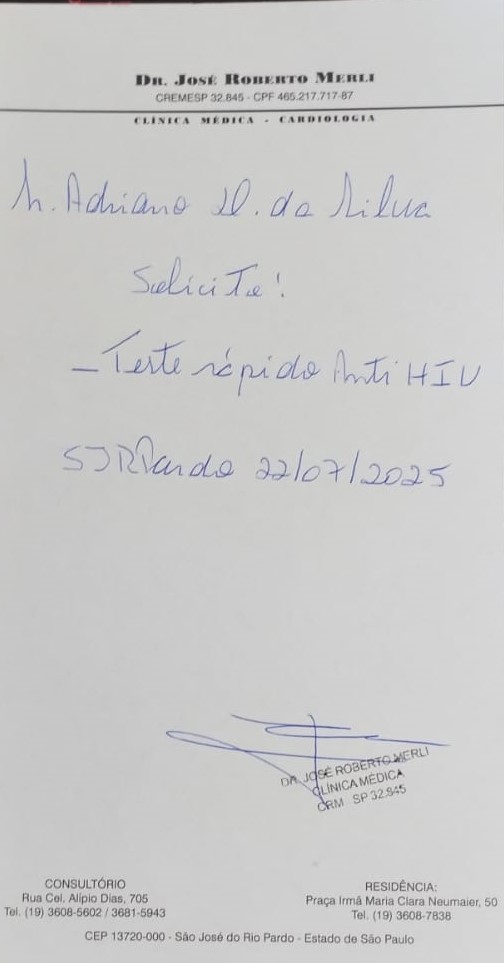 DR. JOSÉ ROBERTO MERLI
CREMESP 32.845 - CPF 465.217.717-87
CLÍNICA MÉDICA - CARDIOLOGIA
Sr. Adriano D. da Silva
Solicito:
- Teste rápido Anti HIV
SJRPardo 22/07/2025
DR. JOSÉ ROBERTO MERLI
CLÍNICA MÉDICA
CRM SP 32.845
CONSULTÓRIO
Rua Cel. Alípio Dias, 705
Tel. (19) 3608-5602 / 3681-5943
RESIDÊNCIA:
Praça Irmã Maria Clara Neumaier, 50
Tel. (19) 3608-7838
CEP 13720-000 - São José do Rio Pardo - Estado de São Paulo